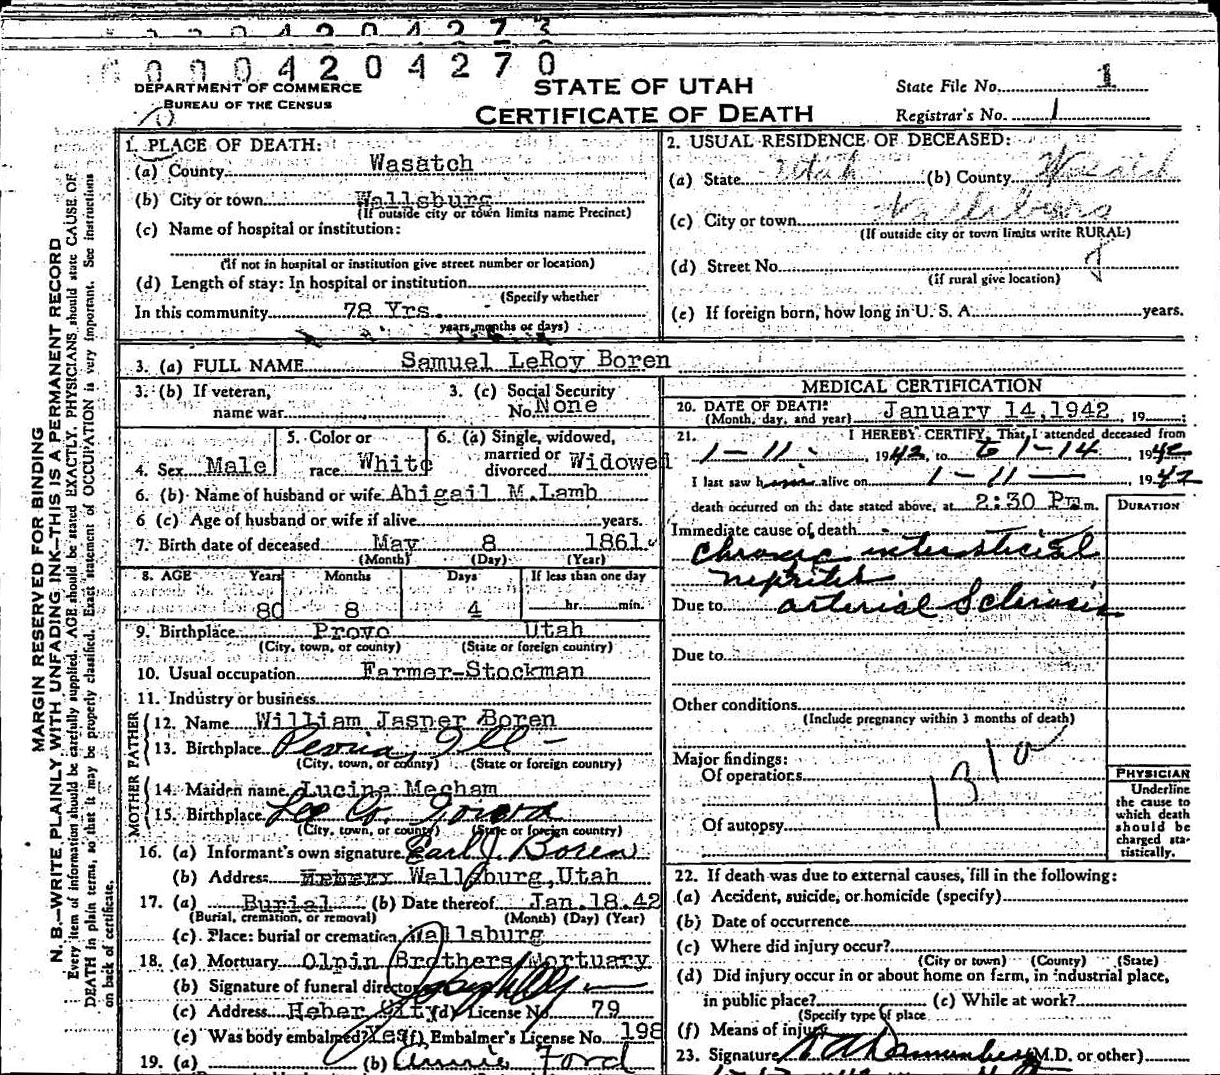 0 0 0 4 2 0 4 2 7 3
0 0 0 4 2 0 4 2 7 0
DEPARTMENT OF COMMERCE
BUREAU OF THE CENSUS
STATE OF UTAH
CERTIFICATE OF DEATH
State File No. 1
Registrar's No. 1
MARGIN RESERVED FOR BINDING
N. B.—WRITE PLAINLY WITH UNFADING INK—THIS IS A PERMANENT RECORD
Every item of information should be carefully supplied. AGE should be stated EXACTLY. PHYSICIANS should state CAUSE OF
DEATH in plain terms, so that it may be properly classified. Exact statement of OCCUPATION is very important. See instructions
on back of certificate.
1. PLACE OF DEATH:
(a) County Wasatch
(b) City or town Wallsburg
(If outside city or town limits name Precinct)
(c) Name of hospital or institution:
(If not in hospital or institution give street number or location)
(d) Length of stay: In hospital or institution
(Specify whether
In this community 78 Yrs.
years, months or days)
2. USUAL RESIDENCE OF DECEASED:
(a) State Utah (b) County Wasatch
(c) City or town Wallsburg
(If outside city or town limits write RURAL)
(d) Street No.
(If rural give location)
(e) If foreign born, how long in U. S. A. years.
3. (a) FULL NAME Samuel LeRoy Boren
3. (b) If veteran, name war
3. (c) Social Security No. None
4. Sex Male
5. Color or race White
6. (a) Single, widowed, married or divorced Widowed
6. (b) Name of husband or wife Abigail M. Lamb
6 (c) Age of husband or wife if alive years.
7. Birth date of deceased May 8 1861
(Month) (Day) (Year)
8. AGE Years Months Days If less than one day
80 8 4 hr. min.
9. Birthplace Provo Utah
(City, town, or county) (State or foreign country)
10. Usual occupation Farmer-Stockman
11. Industry or business
FATHER
12. Name William Jasper Boren
13. Birthplace Peoria, Ill
(City, town, or county) (State or foreign country)
MOTHER
14. Maiden name Lucina Mecham
15. Birthplace Lee Co.
(City, town, or county) (State or foreign country)
16. (a) Informant's own signature Earl J. Boren
(b) Address Wallsburg, Utah
17. (a) Burial (b) Date thereof Jan. 18. 42
(Burial, cremation, or removal) (Month) (Day) (Year)
(c) Place: burial or cremation Wallsburg
18. (a) Mortuary Olpin Brothers Mortuary
(b) Signature of funeral director
(c) Address Heber City (d) License No. 79
(e) Was body embalmed? Yes (f) Embalmer's License No. 198
19. (a) (b) Annie Ford
MEDICAL CERTIFICATION
20. DATE OF DEATH: January 14, 1942, 19
(Month, day, and year)
21. I HEREBY CERTIFY, That I attended deceased from
1-11-, 1942, to 1-14, 1942
I last saw him alive on 1-11-, 1942
death occurred on the date stated above, at 2:30 P m.
DURATION
Immediate cause of death
chronic intersticial
nepritis
Due to arterial Sclerosis
Due to
Other conditions
(Include pregnancy within 3 months of death)
Major findings:
Of operations
Of autopsy
131a
PHYSICIAN
Underline
the cause to
which death
should be
charged sta-
tistically.
22. If death was due to external causes, fill in the following:
(a) Accident, suicide, or homicide (specify)
(b) Date of occurrence
(c) Where did injury occur?
(City or town) (County) (State)
(d) Did injury occur in or about home on farm, in industrial place,
in public place? (e) While at work?
(Specify type of place
(f) Means of injury
23. Signature (M.D. or other)